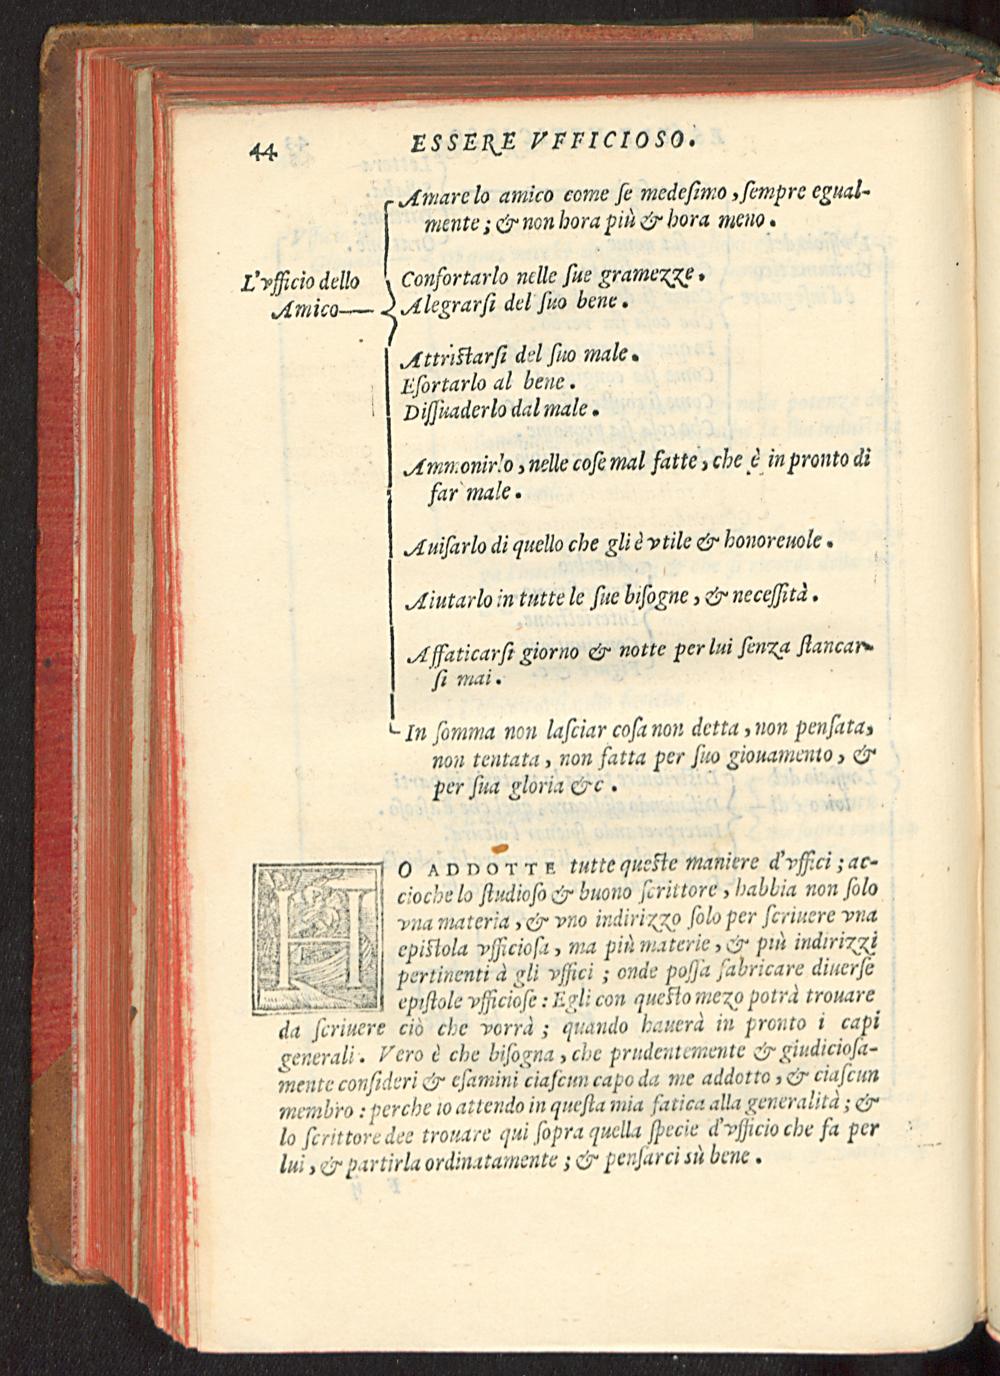 44
ESSERE VFFICIOSO.
Amare lo amico come se medesimo, sempre egual-
mente; & non hora più & hora meno.
L'vfficio dello
Amico
Confortarlo nelle sue gramezze.
Alegrarsi del suo bene.
Attristarsi del suo male.
Esortarlo al bene.
Dissuaderlo dal male.
Ammonirlo, nelle cose mal fatte, che è in pronto di
far male.
Auisarlo di quello che gli è vtile & honoreuole.
Aiutarlo in tutte le sue bisogne, & necessità.
Affaticarsi giorno & notte per lui senza stancar-
si mai.
In somma non lasciar cosa non detta, non pensata,
non tentata, non fatta per suo giouamento, &
per sua gloria &c.
HO ADDOTTE tutte queste maniere d'vffici; ac-
cioche lo studioso & buono scrittore, habbia non solo
vna materia, & vno indirizzo solo per scriuere vna
epistola vfficiosa, ma più materie, & più indirizzi
pertinenti à gli vffici; onde possa fabricare diuerse
epistole vfficiose: Egli con questo mezo potrà trouare
da scriuere ciò che vorrà; quando hauerà in pronto i capi
generali. Vero è che bisogna, che prudentemente & giudiciosa-
mente consideri & esamini ciascun capo da me addotto, & ciascun
membro: perche io attendo in questa mia fatica alla generalità; &
lo scrittore dee trouare qui sopra quella specie d'vfficio che fa per
lui, & partirla ordinatamente; & pensarci sù bene.